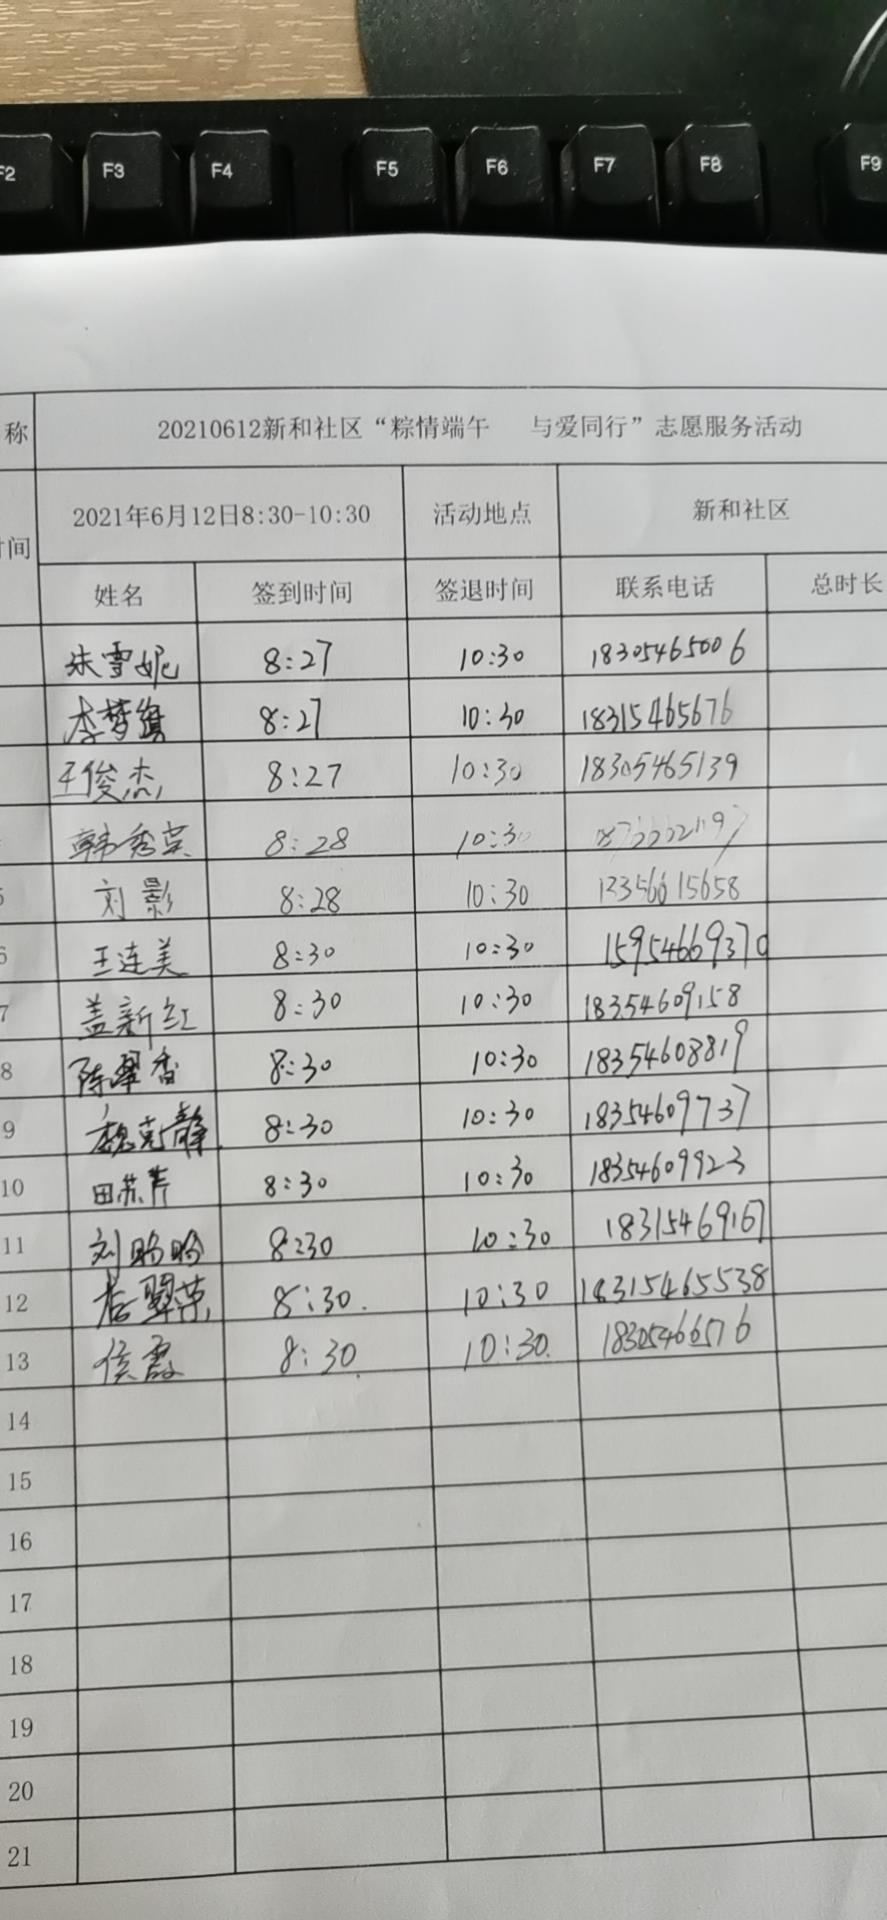 F2 F3 F4 F5 F6 F7 F8 F9
称 20210612新和社区“粽情端午 与爱同行”志愿服务活动
时间 2021年6月12日8:30-10:30 活动地点 新和社区
姓名 签到时间 签退时间 联系电话 总时长
朱雪妮 8:27 10:30 18305465006
李梦 8:27 10:30 18315465676
王俊杰 8:27 10:30 18305465139
韩秀英 8:28 10:30
5 刘影 8:28 10:30 13356615658
6 王连美 8:30 10:30 15954669370
7 盖新红 8:30 10:30 18354609158
8 陈翠香 8:30 10:30 18354608819
9 魏克静 8:30 10:30 18354609737
10 田苏芹 8:30 10:30 18354609923
11 刘盼盼 8:30 10:30 18315469167
12 翠荣 8:30. 10:30 18315465538
13 侯霞 8:30. 10:30. 18305466576
14
15
16
17
18
19
20
21